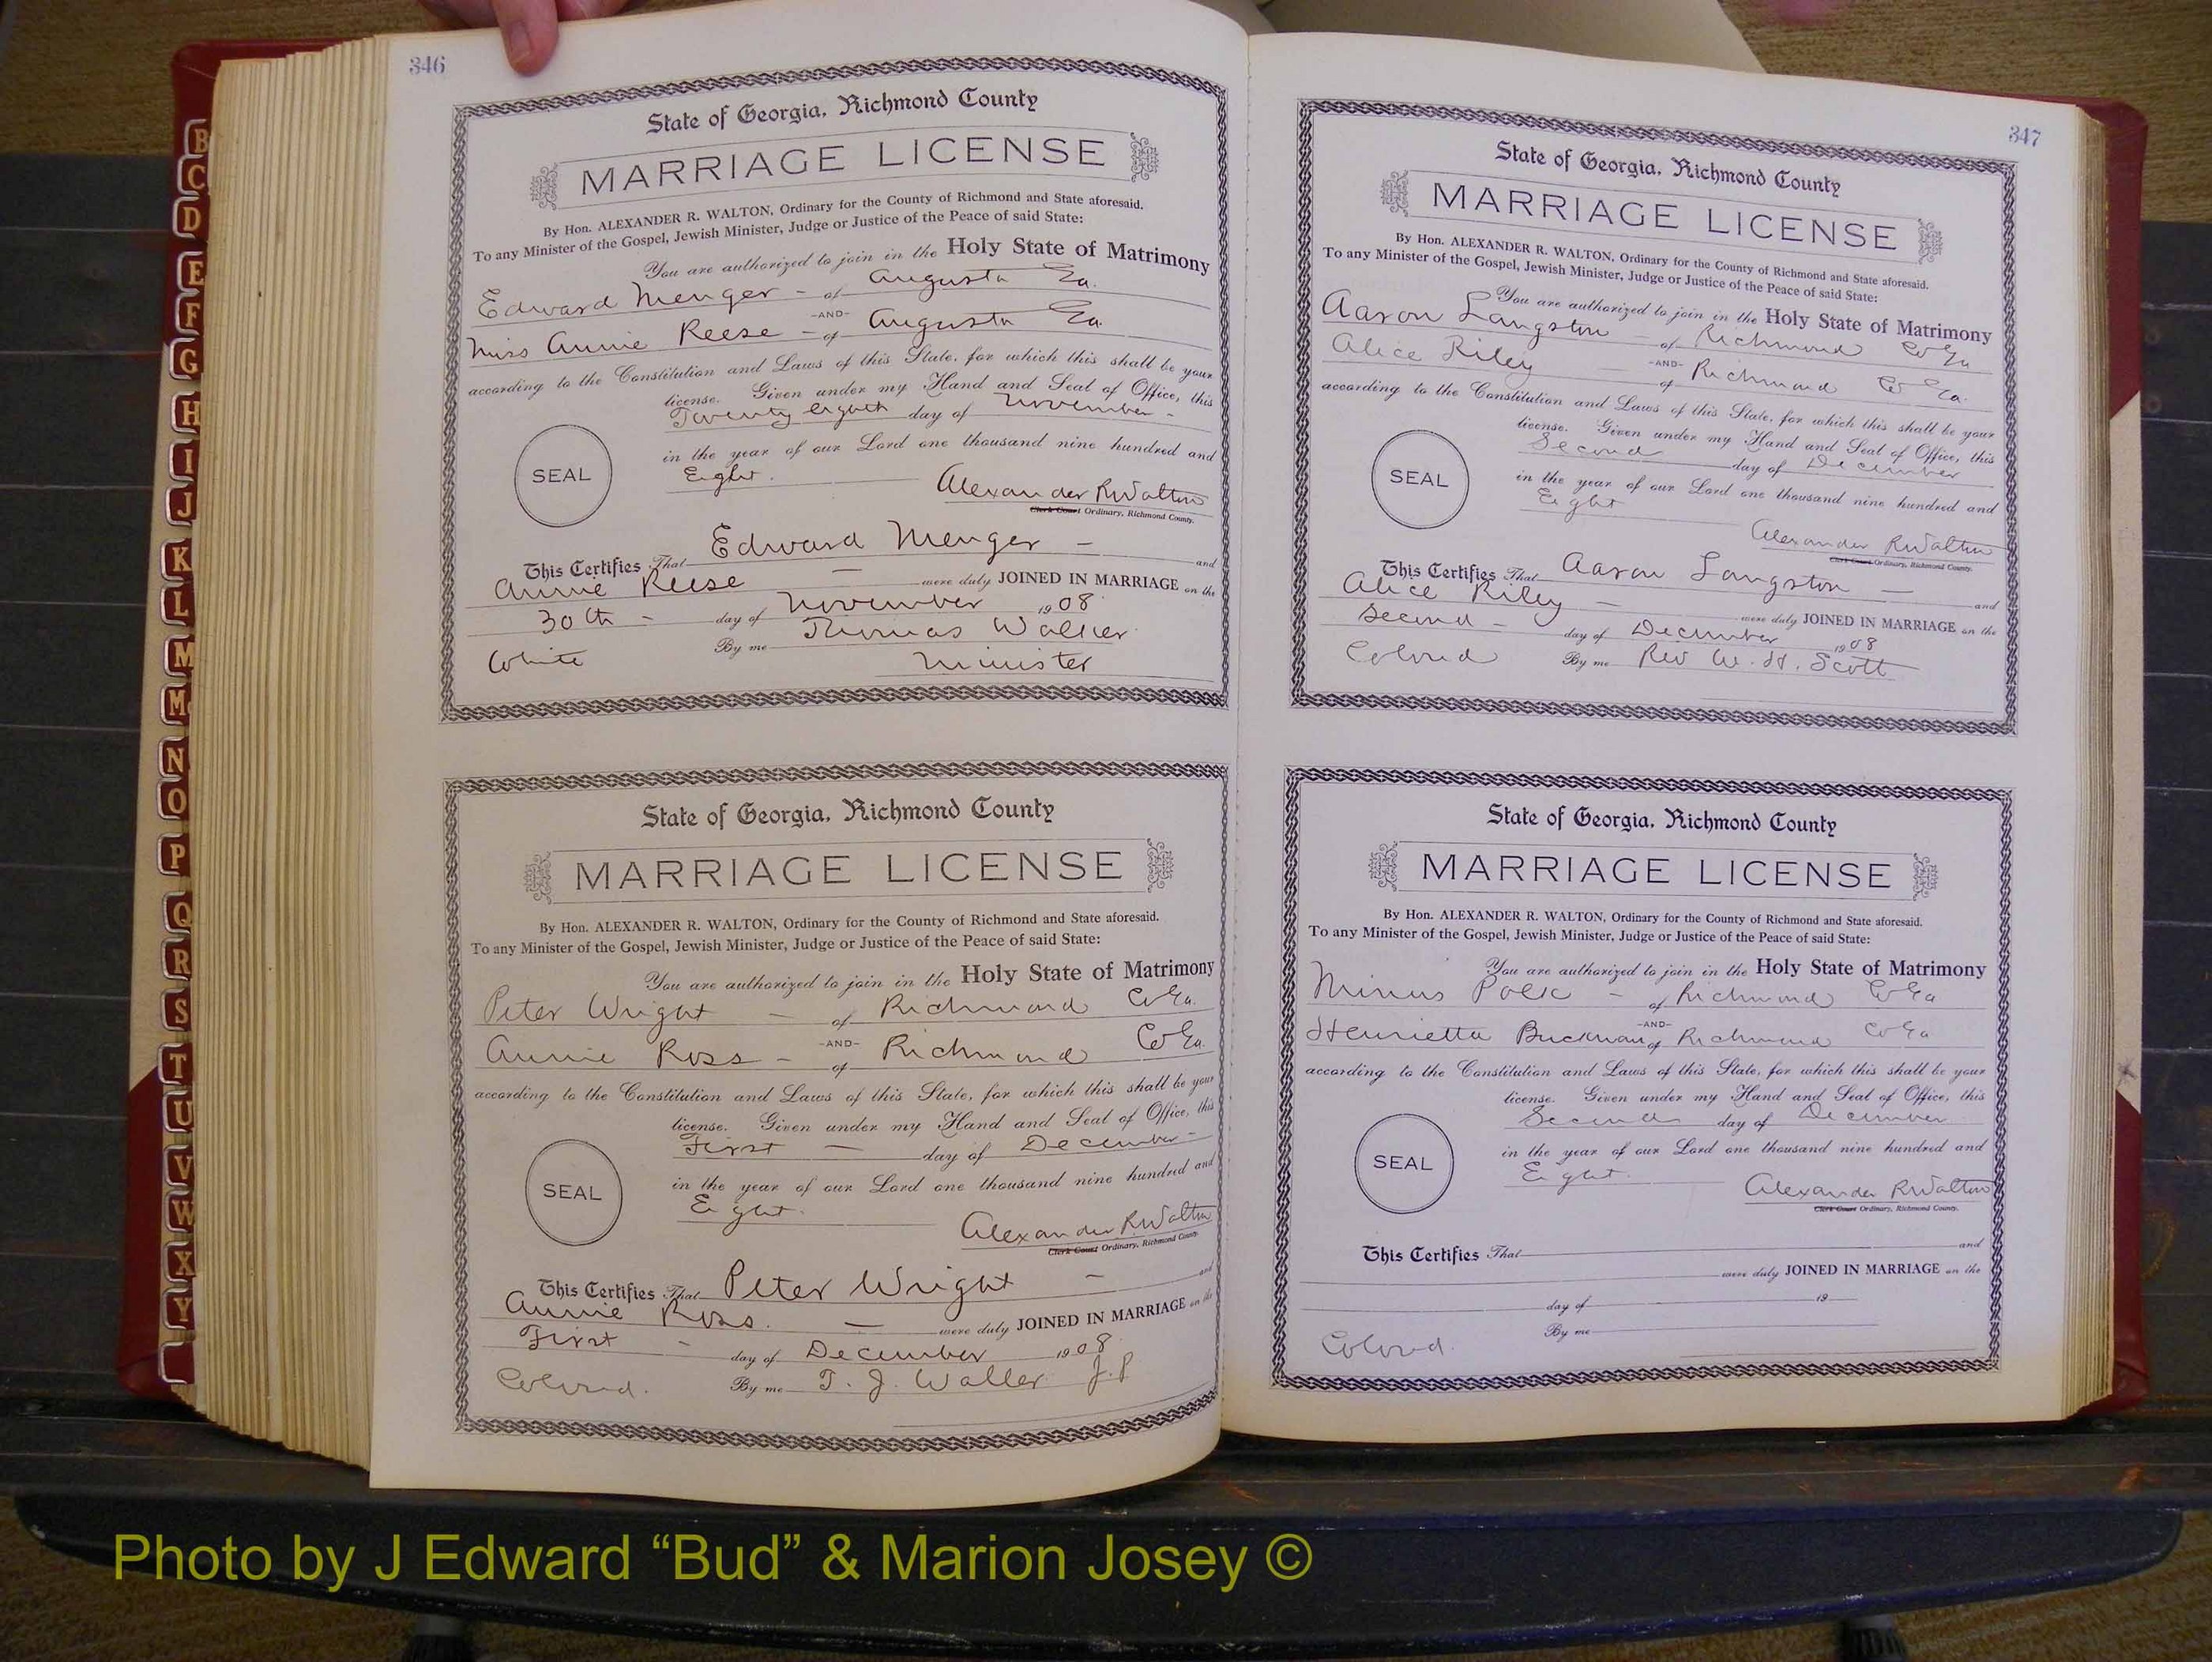 346
State of Georgia, Richmond County
MARRIAGE LICENSE
By Hon. ALEXANDER R. WALTON, Ordinary for the County of Richmond and State aforesaid.
To any Minister of the Gospel, Jewish Minister, Judge or Justice of the Peace of said State:
You are authorized to join in the Holy State of Matrimony
Edward Menger - of Augusta Ga.
-AND-
Miss Annie Reese - of Augusta Ga.
according to the Constitution and Laws of this State, for which this shall be your
license. Given under my Hand and Seal of Office, this
Twenty eighth day of November -
in the year of our Lord one thousand nine hundred and
Eight.
SEAL
Alexander R Walton
Clerk Court Ordinary, Richmond County.
This Certifies That Edward Menger - and
Annie Reese - were duly JOINED IN MARRIAGE on the
30th - day of November 1908
By me Thomas Walker
White Minister
State of Georgia, Richmond County
MARRIAGE LICENSE
By Hon. ALEXANDER R. WALTON, Ordinary for the County of Richmond and State aforesaid.
To any Minister of the Gospel, Jewish Minister, Judge or Justice of the Peace of said State:
You are authorized to join in the Holy State of Matrimony
Peter Wright - of Richmond Co Ga.
-AND-
Annie Ross - of Richmond Co Ga.
according to the Constitution and Laws of this State, for which this shall be your
license. Given under my Hand and Seal of Office, this
First - day of December -
in the year of our Lord one thousand nine hundred and
Eight.
SEAL
Alexander R Walton
Clerk Court Ordinary, Richmond County.
This Certifies That Peter Wright - and
Annie Ross. - were duly JOINED IN MARRIAGE on the
First - day of December 1908
Colored. By me T. J. Waller J.P
347
State of Georgia, Richmond County
MARRIAGE LICENSE
By Hon. ALEXANDER R. WALTON, Ordinary for the County of Richmond and State aforesaid.
To any Minister of the Gospel, Jewish Minister, Judge or Justice of the Peace of said State:
You are authorized to join in the Holy State of Matrimony
Aaron Langston - of Richmond Co Ga
-AND-
Alice Riley of Richmond Co Ga.
according to the Constitution and Laws of this State, for which this shall be your
license. Given under my Hand and Seal of Office, this
Second day of December
in the year of our Lord one thousand nine hundred and
Eight
SEAL
Alexander R Walton
Clerk Court Ordinary, Richmond County.
This Certifies That Aaron Langston - and
Alice Riley - were duly JOINED IN MARRIAGE on the
Second - day of December 1908
Colored By me Rev W. H. Scott
State of Georgia, Richmond County
MARRIAGE LICENSE
By Hon. ALEXANDER R. WALTON, Ordinary for the County of Richmond and State aforesaid.
To any Minister of the Gospel, Jewish Minister, Judge or Justice of the Peace of said State:
You are authorized to join in the Holy State of Matrimony
Minus Polk - of Richmond Co Ga
-AND-
Henrietta Buckman of Richmond Co Ga
according to the Constitution and Laws of this State, for which this shall be your
license. Given under my Hand and Seal of Office, this
Second day of December
in the year of our Lord one thousand nine hundred and
Eight.
SEAL
Alexander R Walton
Clerk Court Ordinary, Richmond County.
This Certifies That and
were duly JOINED IN MARRIAGE on the
day of 19
By me
Colored.
B
C
D
E
F
G
H
I
J
K
L
M
M
N
O
P
Q
R
S
T
U
V
W
X
Y
Photo by J Edward “Bud” & Marion Josey ©